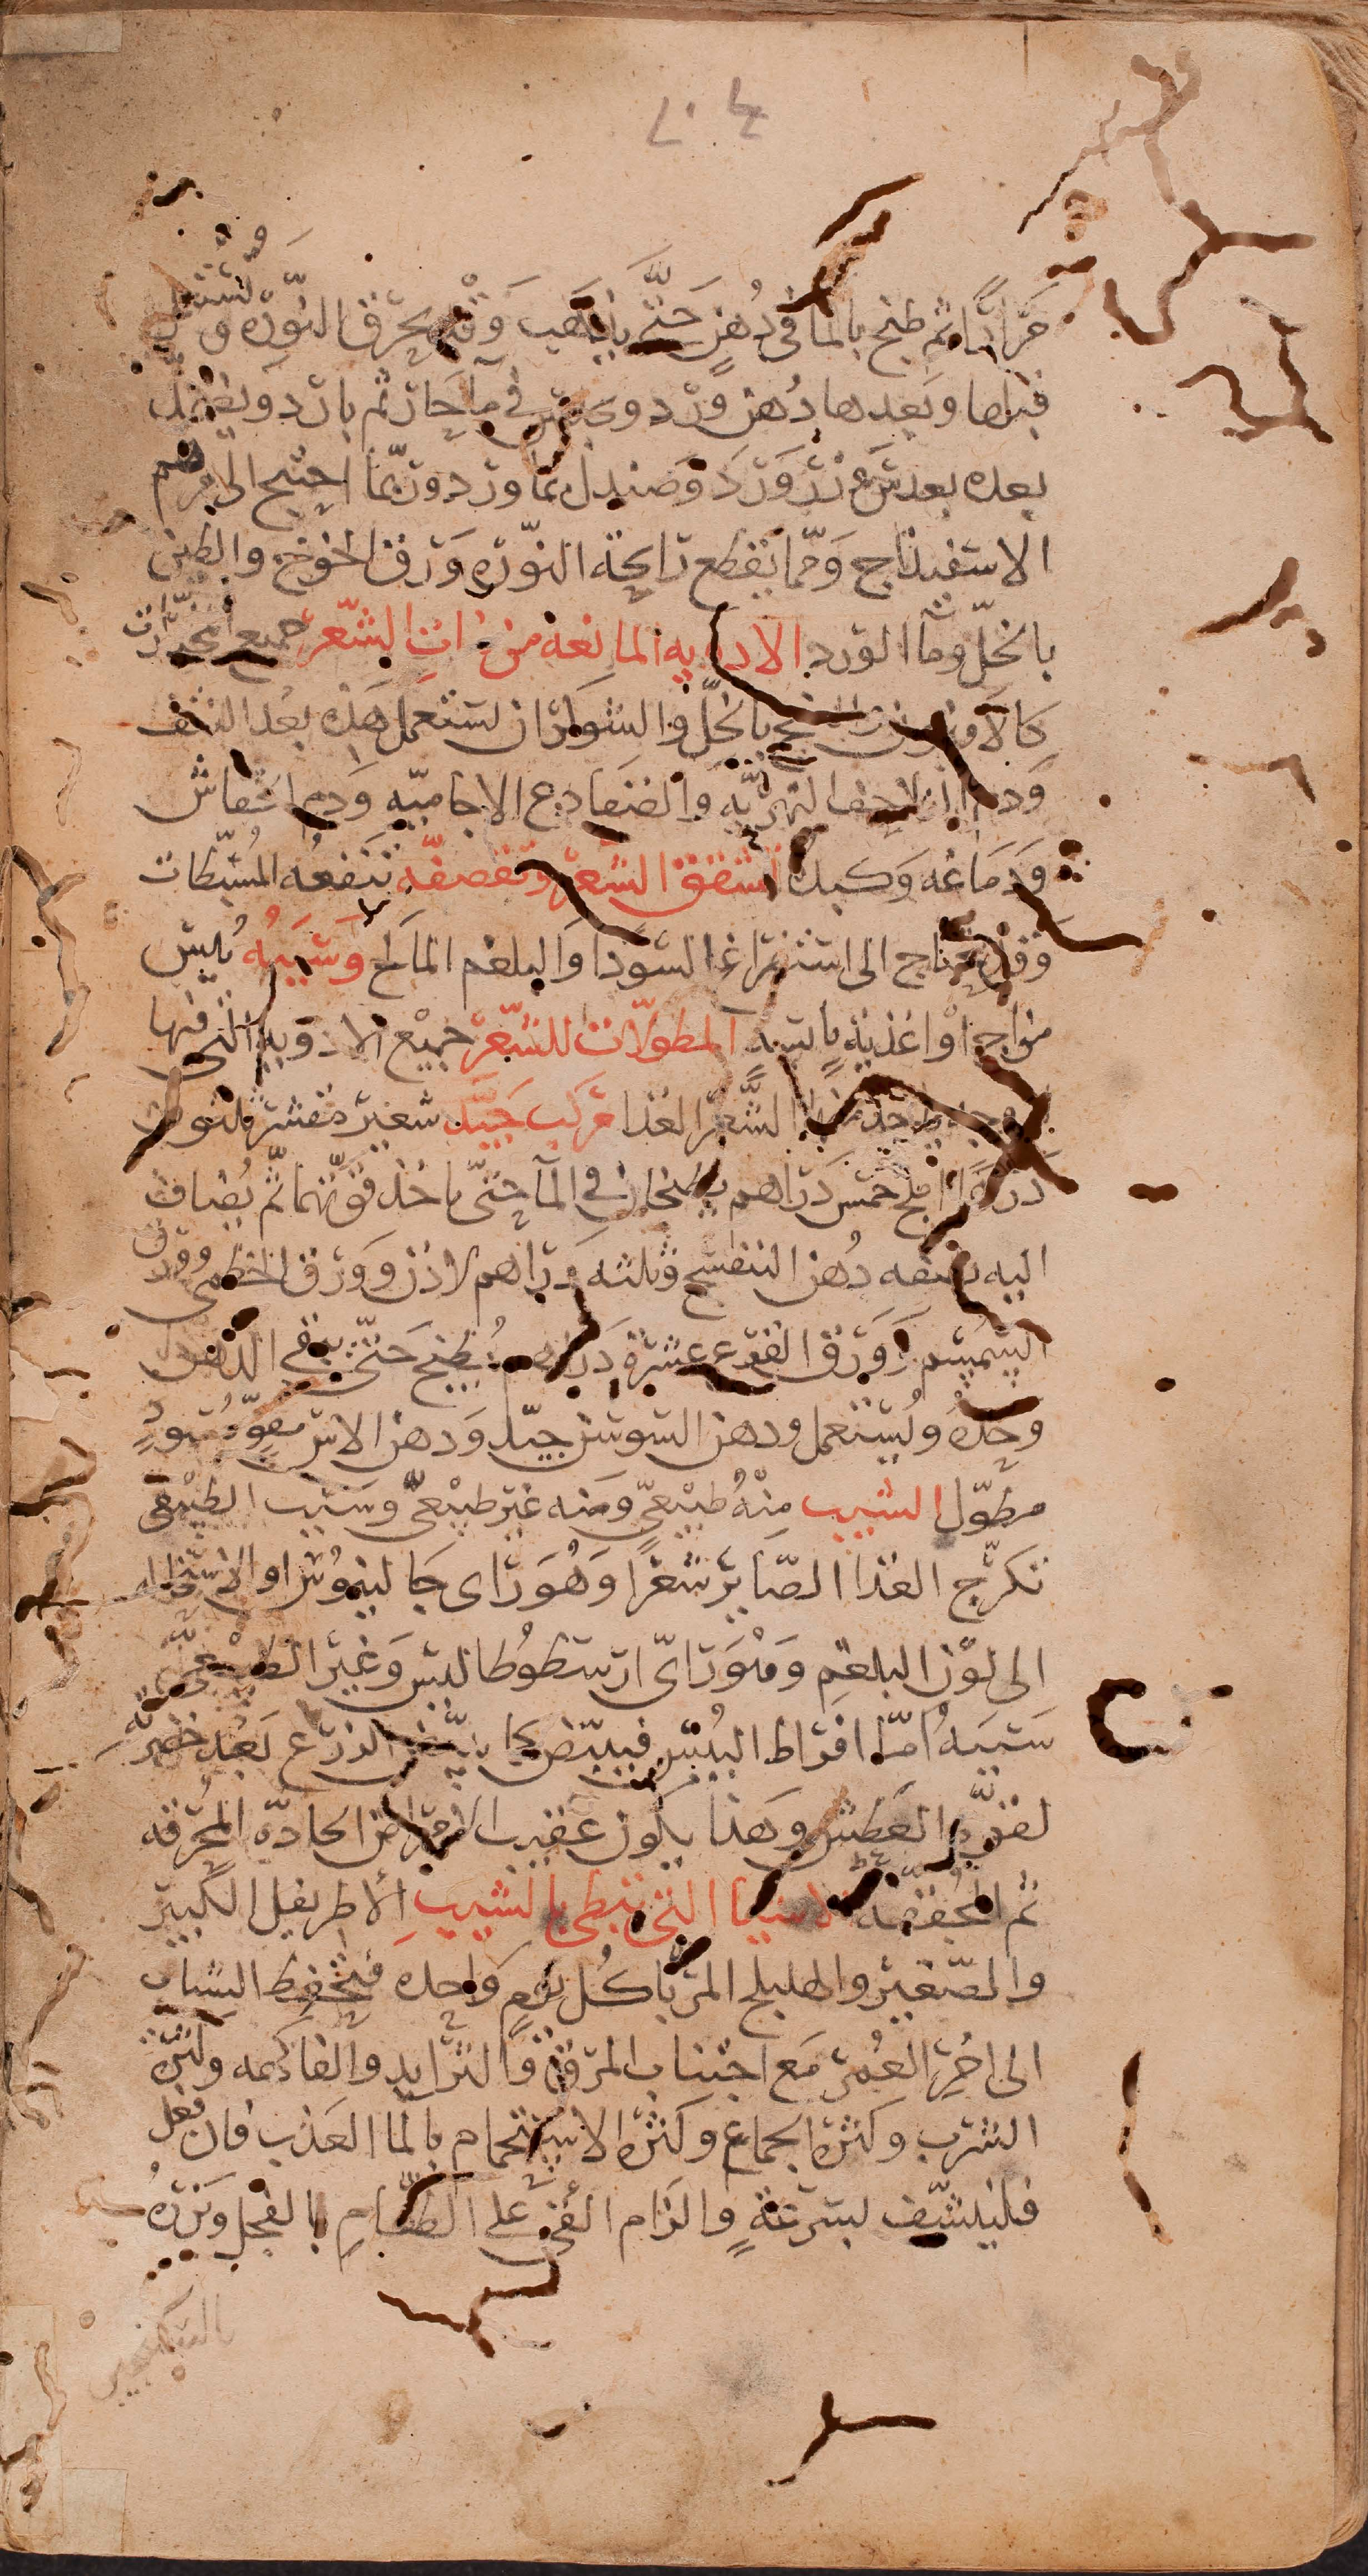 مرارا ثم طبخ بالما فى دهن حتى يذهب وقد يحرق النورة ويستعمل
قبلها وبعدها دهن ورد ويجلس فى ما حار ثم بارد ويغسل
بعده بعدس وبزر ورد وصندل بماورد وربما احتيج الى مرهم
الاسفيذاج ومما يقطع رايحة النورة ورق الخوخ والطين
بالخل وما الورد الادويه المانعه من نبات الشعر جميع المخدرات
كالافيون والبنج بالخل والشوكران تستعمل هذه بعد النتف
ودم السلاحف النهريه والضفادع الاجاميه ودم الخفاش
ودماغه وكبده تشقق الشعر وتقصفه تنفعه المسبطات
وقد يحتاج الى استفراغ السودا والبلغم المالح وسببه يبس
مزاج او اغذية يابسة المطولات للشعر جميع الادويه التى فيها
الشعر الغذا مركب جيد شعير مقشر ثلثون
درهما املج خمس دراهم يطبخان فى المآ حتى ياخذ قوتهما ثم يضاف
اليه نصفه دهن البنفسج وثلثه دراهم لاذن وورق الخطمى وورق
السمسم وورق القرع عشرة دراهم يطبخ حتى يبقى الدهن
وحده ويستعمل ودهن السوسن جيد ودهن الاس مقو مسود
مطول الشيب منه طبيعى ومنه غير طبيعى وسبب الطبيعى
تكرج الغذا الصاير شعرا وهو راى جالينوس او الاستحاله
الى لون البلغم وهو راى ارسطوطاليس وغير الطبيعى
سببه اما افراط اليبس فيبيض كما يبيض الزرع بعد خضرته
لقوة العطش وهذا يكون عقيب الامراض الحادة المحرقه
ثم المجففة الاشيا التى تبطى بالشيب الاطريفل الكبير
والصغير والهليلج المربا كل يوم واحده فتحفظ الشباب
الى اخر العمر مع اجتناب المرق والثرايد والفاكهه وكثرة
الشرب وكثرة الجماع وكثرة الاستحمام بالما العذب فان فعل
فلينشف بسرعة والزام القى على الطعام بالفجل وبزره
بالسكنجبين